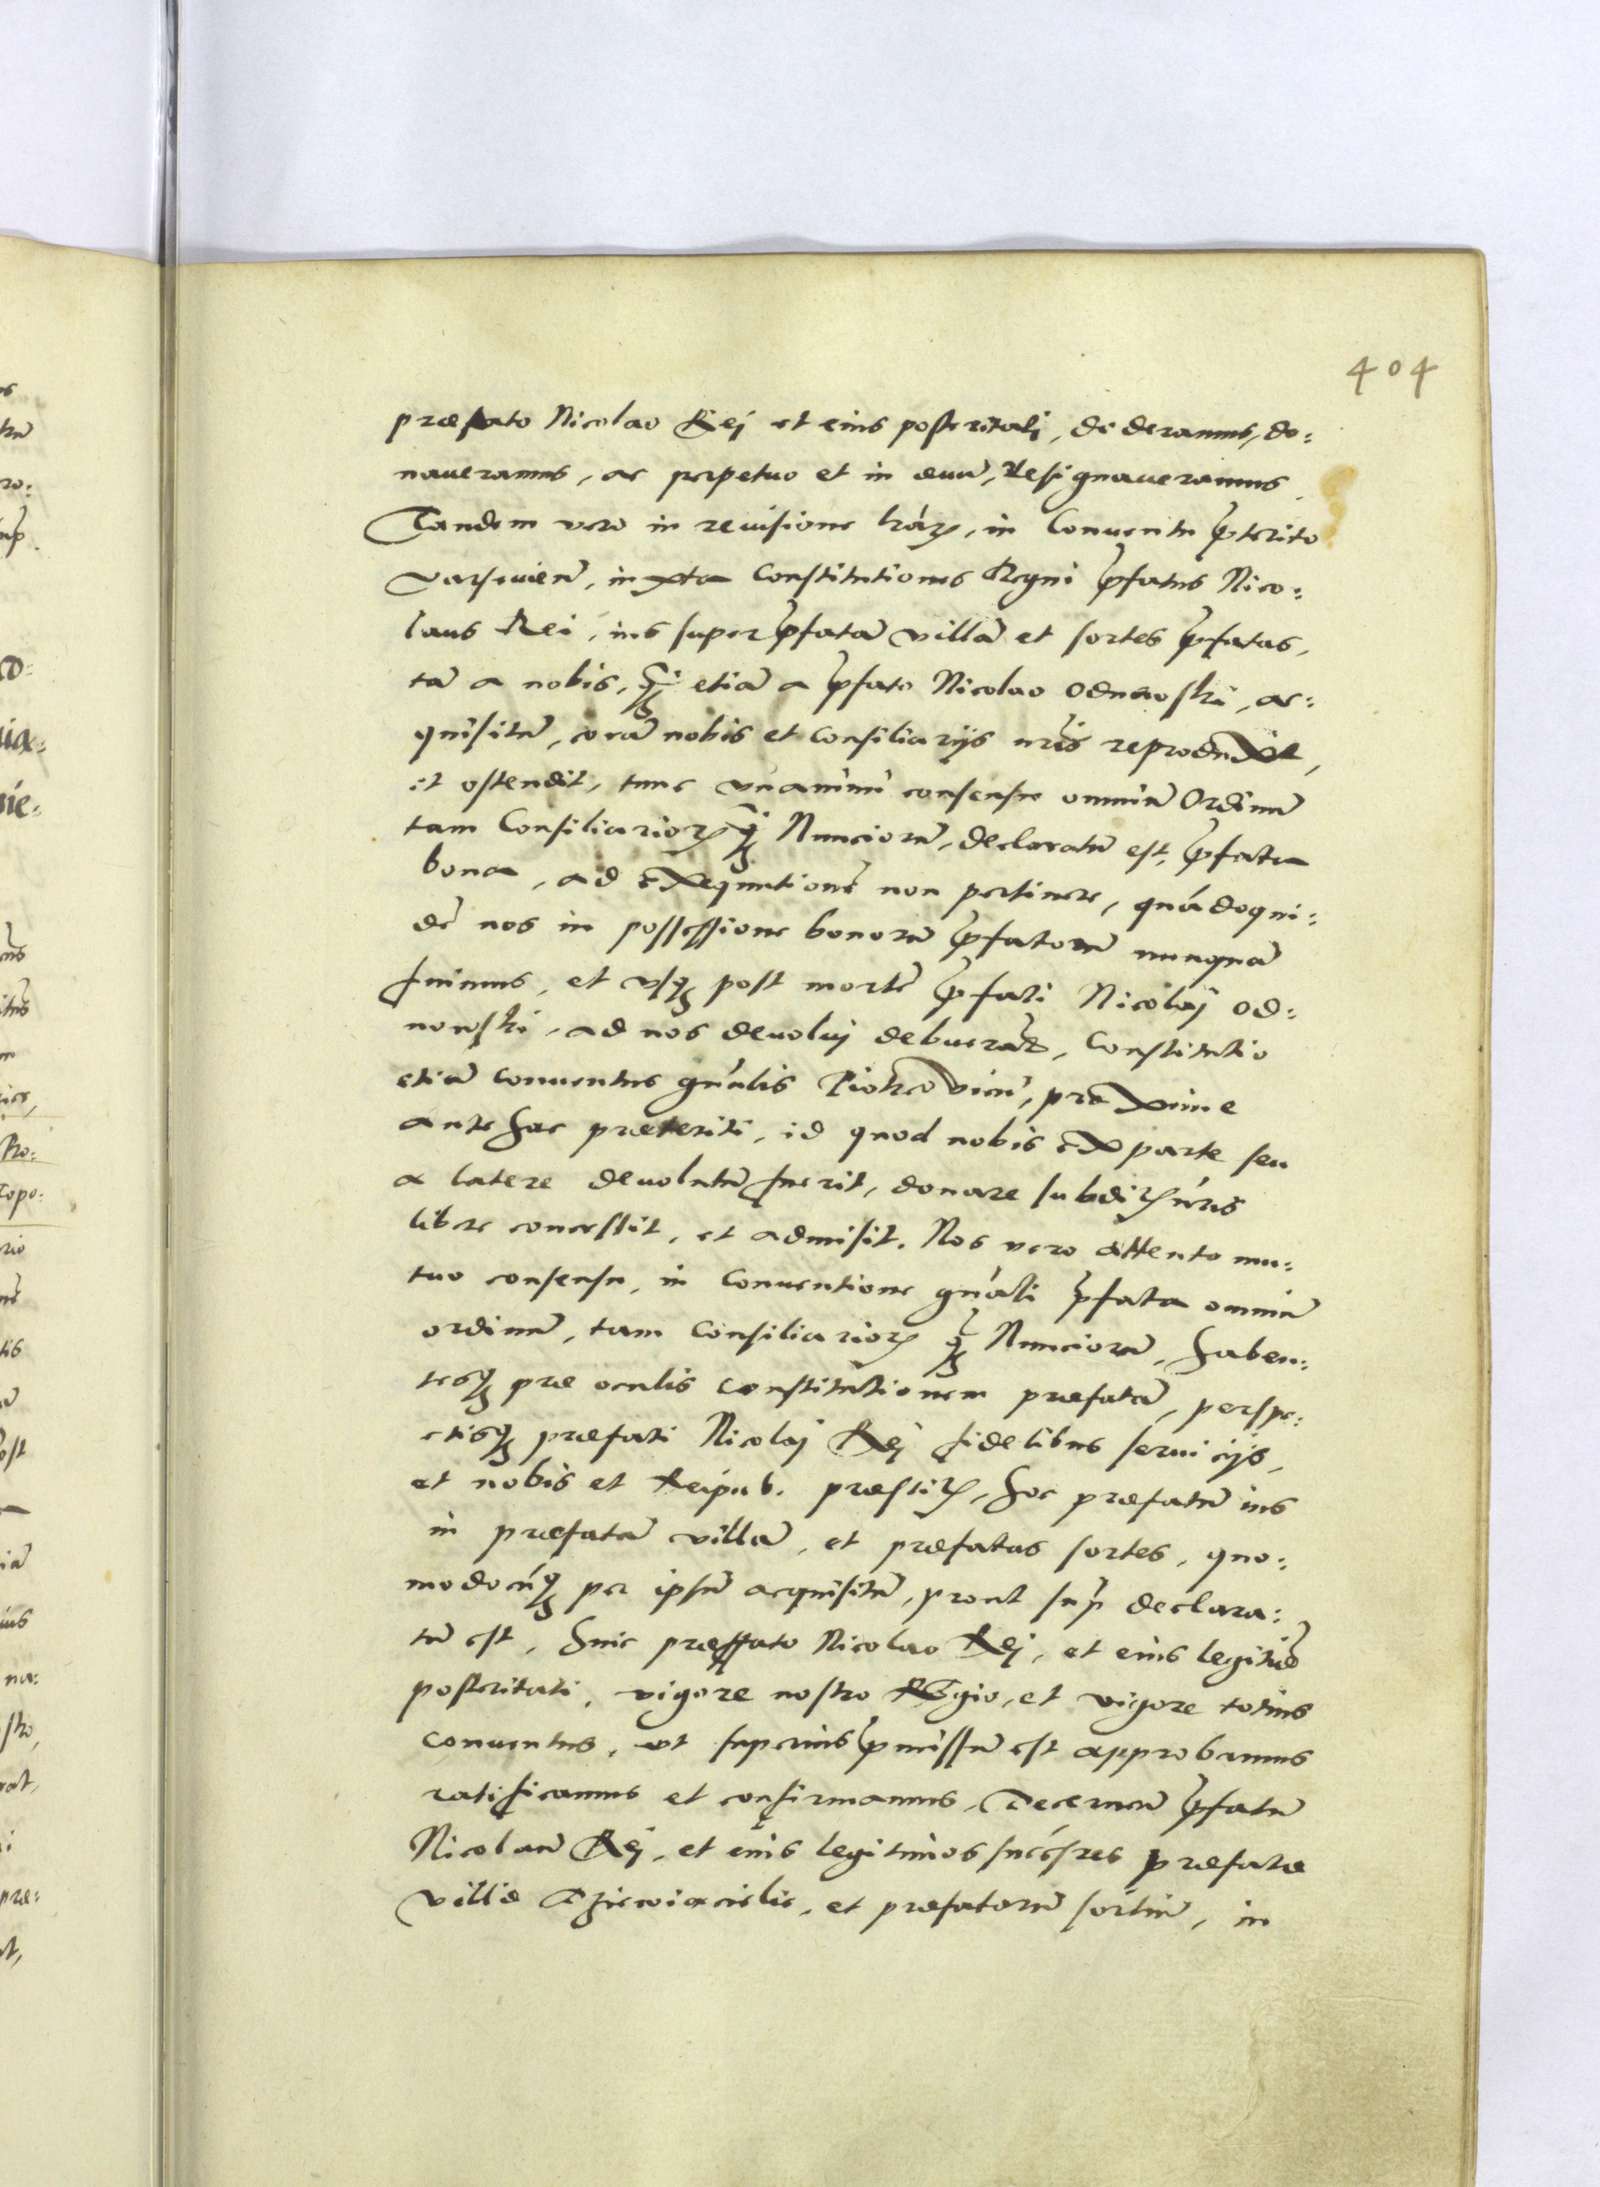 404
præfato Nicolao Rej et eius posteritati, dederamus, do:
naueramus, ac perpetuo et in æuũ, resignaueramus.
Tandem vero in reuisione l̃rarꝫ, in Conuentu p̃terito
Varseuieñ, iuxta Constitutiones Regni p̃fatus Nico:
laus Rei, ius super p̃fatã villã et sortes p̃fatas,
tã a nobis, q̃ȝ etiã a p̃fato Nicolao Odnowski, ac:
quisitũ, corã nobis et Consiliarijs nr̃is reproduxit,
et ostendit, tunc vnanimi consensu omniũ Ordinũ
tam Consiliariorꝫ q̃ȝ Nunciorũ, declaratũ est, p̃fata
bona, ad exequutionẽ non pertinere, quãdoqui:
dẽ nos in possessione bonorũ p̃fatorũ nunquã
fuimus, et vsqȝ post mortẽ p̃fati Nicolaj Od:
nowski, ad nos deuolui debuerãt, Constitutio
etiã conuentus gñalis Piotrcovieñ, proxime
ante hac præteriti, id quod nobis ex parte seu
a latere deuolutũ fuerit, donare subditꝫ nr̃is
libere concessit, et admisit. Nos vero attento mu:
tuo consensu, in Conuentione gñali p̃fata omniũ
ordinũ, tam Consiliariorꝫ q̃ȝ Nunciorũ, haben:
tesqȝ præ oculis Constitutionem præfatã, perspe:
ctisqȝ præfati Nicolaj Rej fidelibus seruicijs,
et nobis et Reipub. præstitꝫ, hoc præfatũ ius
in præfatã villã, et præfatas sortes, quo:
modocũqȝ per ipsũ acquisitũ, prout sup̃ declara:
tũ est, huic præfato Nicolao Rej, et eius legitiẽ
posteritati, vigore nostro Regio, et vigore totius
conuentus, vt superius p̃missũ est approbamus
ratificamus et confirmamus, Decerneñ p̃fatũ
Nicolaũ Rej, et eius legitimos succ̃sores præfatæ
villæ et præfatorũ sortiũ, in